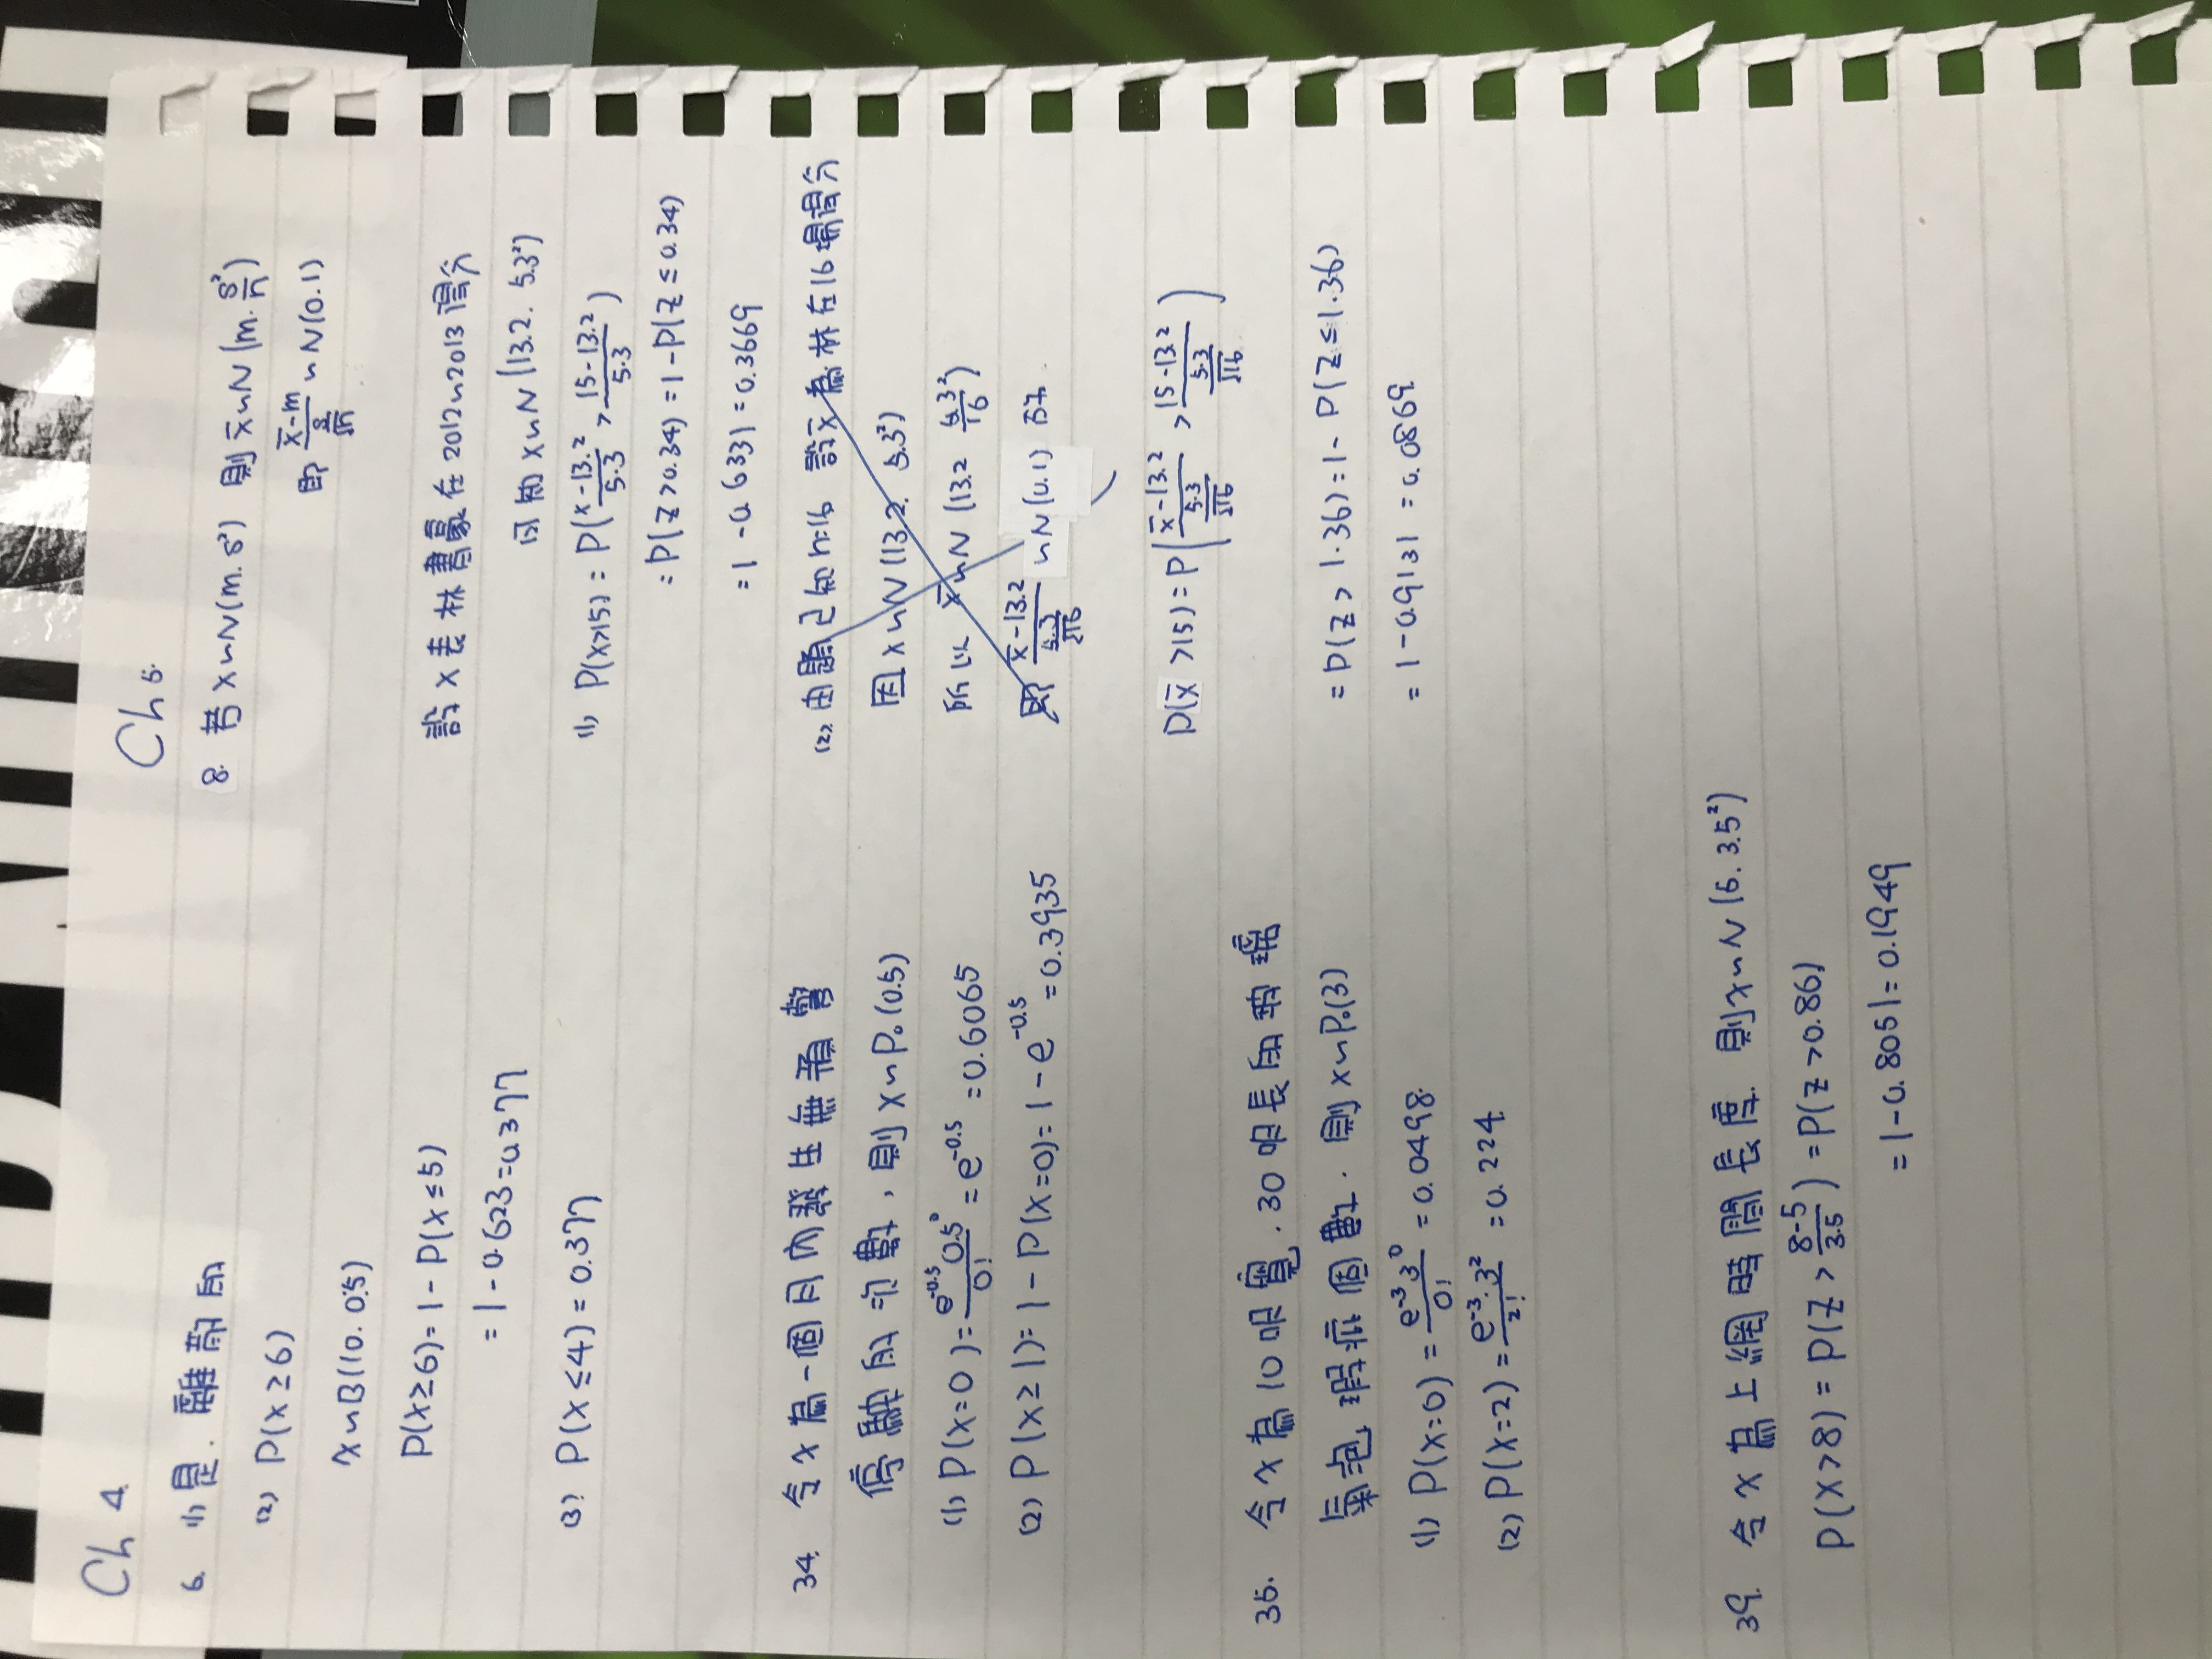 Ch 4.
6. (1) 是. 離散的
(2) P(x≥6)
x~B(10. 0.5)
P(x≥6)= 1 - P(x≤5)
= 1 - 0.623 = 0.377
(3) P(x≤4) = 0.377
34. 令x為一個月內發生無預警
停駛的次數, 則x~Po(0.5)
(1) P(x=0) = e^-0.5 0.5^0 / 0! = e^-0.5 = 0.6065
(2) P(x≥1) = 1 - P(x=0) = 1 - e^-0.5 = 0.3935
35. 令x為10呎寬.30呎長的玻璃
氣泡瑕疵個數. 則x~Po(3)
(1) P(x=0) = e^-3 3^0 / 0! = 0.0498
(2) P(x=2) = e^-3 · 3^2 / 2! = 0.224
39. 令x為上網時間長度. 則x~N(5. 3.5²)
P(x>8) = P(Z > 8-5 / 3.5) = P(Z>0.86)
= 1 - 0.8051 = 0.1949
Ch 5.
8. 若x~N(m. s²) 則x̄~N(m. s²/n)
即 x̄-m / (s/√n) ~N(0.1)
設x表林書豪在2012~2013得分
可知x~N(13.2. 5.3²)
(1) P(x>15) = P(x-13.2 / 5.3 > 15-13.2 / 5.3)
= P(Z>0.34) = 1-P(Z≤0.34)
= 1 - 0.6331 = 0.3669
(2) 由題已知n=16 設x̄為林在16場得分
因x~N(13.2. 5.3²)
所以 x̄~N(13.2 5.3²/16)
即 x̄-13.2 / (5.3/√16) ~N(0.1)
P(x̄>15) = P(x̄-13.2 / (5.3/√16) > 15-13.2 / (5.3/√16))
= P(Z>1.36) = 1- P(Z≤1.36)
= 1-0.9131 = 0.0869